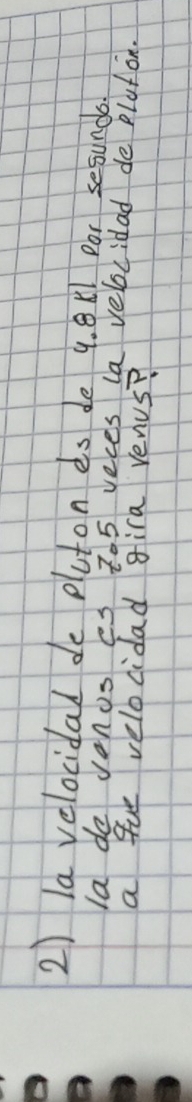 2) la velocidad de pluton es de 4.8 kl por segundo.
la de venus es 7.5 veces la velocidad de plutón.
a que velocidad gira venus?